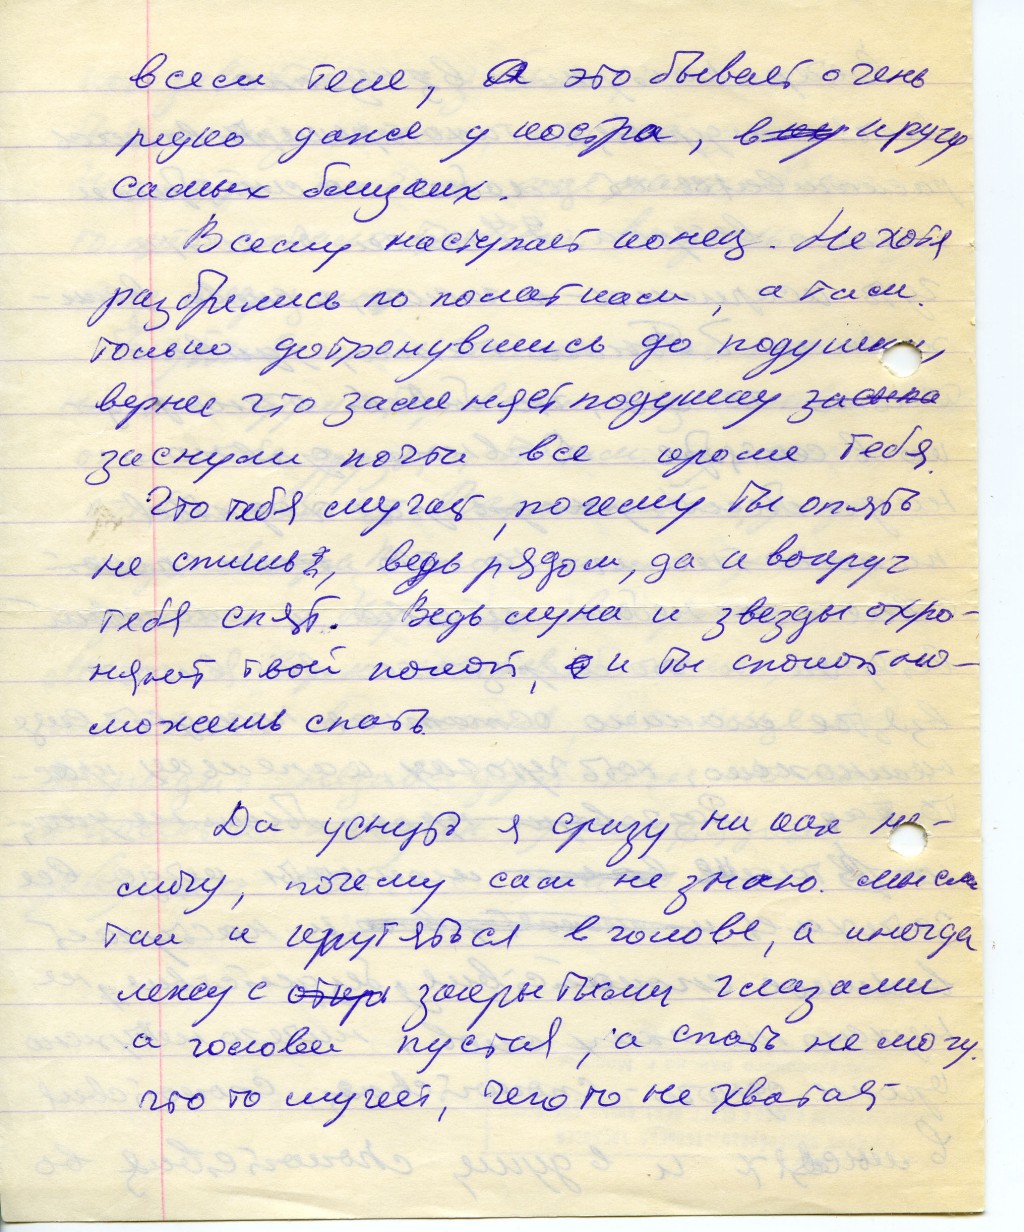 всем теле, а это бывает очень
редко даже у костра, в кругу
самых близких.
Всему наступает конец. Нехотя
разбрелись по палаткам, а там.
только дотронувшись до подушки,
вернее что заменяет подушку засыпа
заснули почти все кроме тебя.
Что тебя мучает, почему ты опять
не спишь, ведь рядом, да и вокруг
тебя спят. Ведь луна и звезды охро-
няют твой покой, и ты спокойно-
можешь спать.
Да уснуть я сразу ни как не-
могу, почему сам не знаю. мысли
так и крутяться в голове, а иногда
лежу с откры закрытыми глазами
а голова пустая, а спать не могу.
что то мучает, чего то не хватает